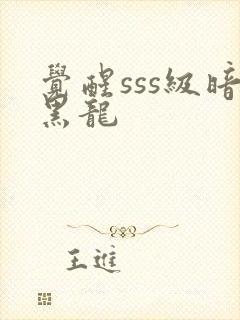 覺醒sss級暗
黑龍
王進